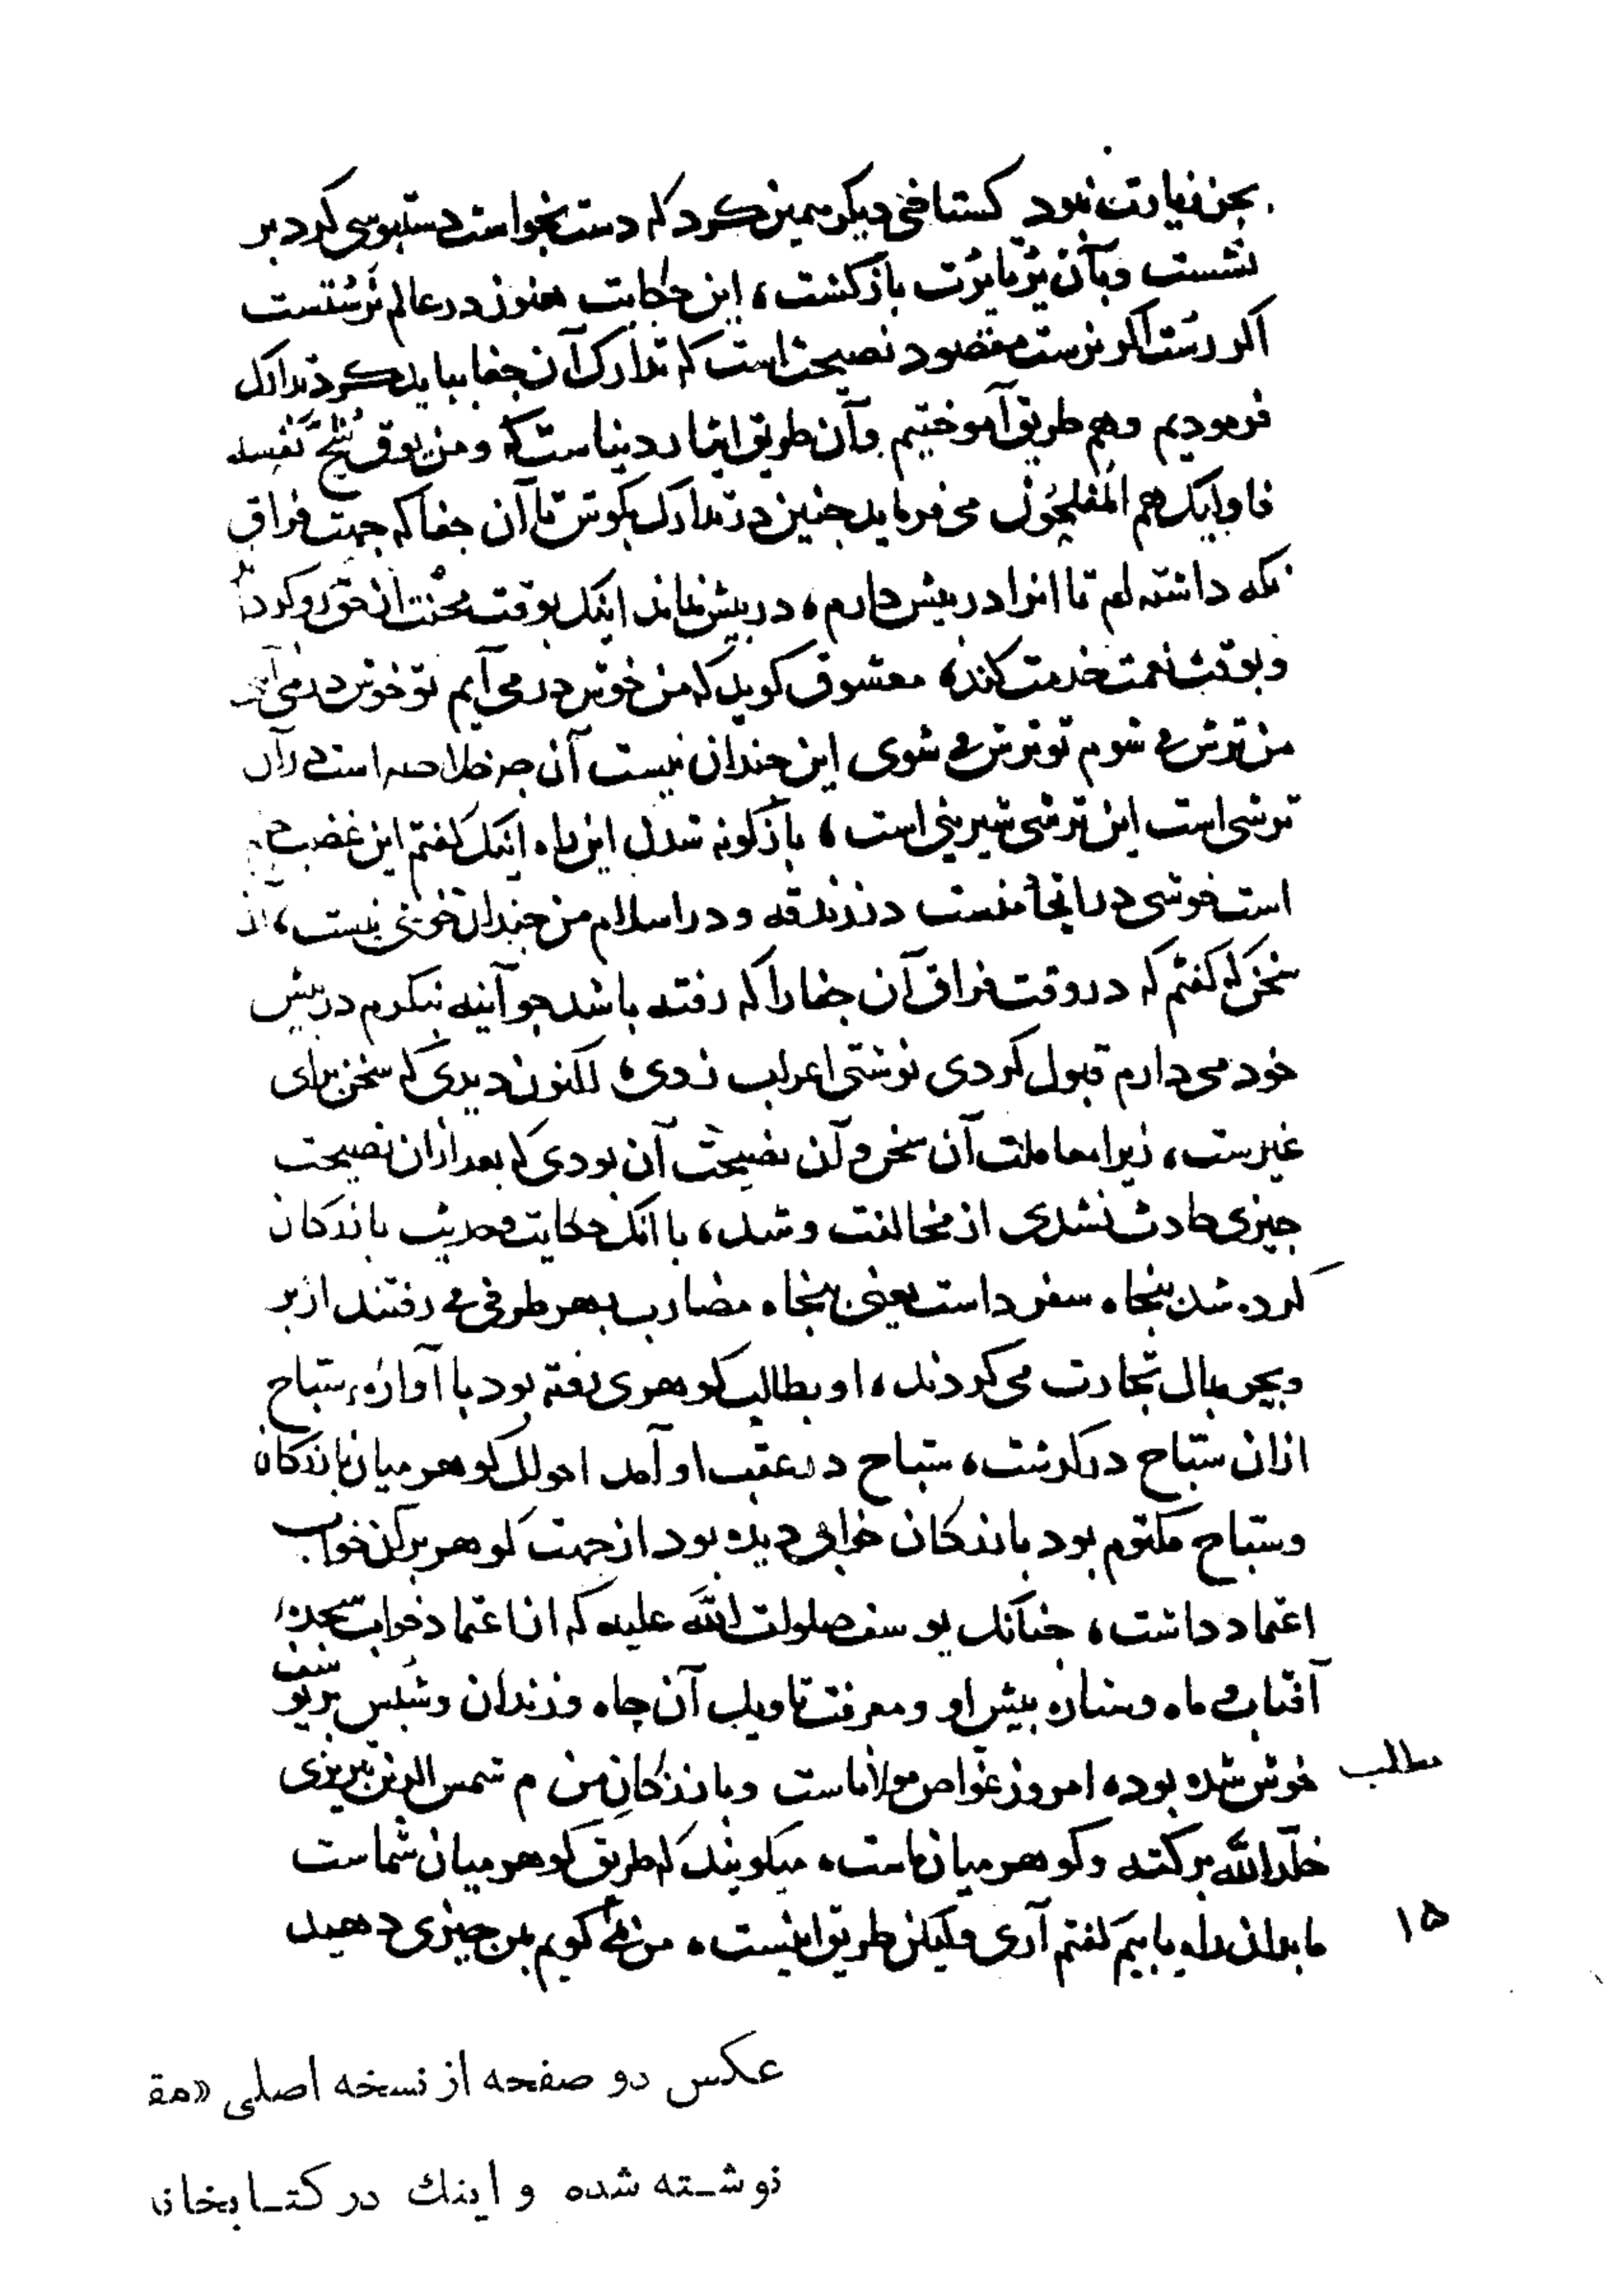 بجز زیارت نبود کستاخی دیکر همین کرد که دست بخواست دستبوسی کرد بر
نشست و بآن پرتاپرت بازکشت، این حکایت هنوز در عالم نرستست
اکر رست اکر نرست مقصود نصیحت است که تدارک آن جفا بباید کرد تدارک
فرمودیم و هم طریق آموختیم و آن طریق ایثار دنیاست که ومن یوق شح نفسه
فاولیک هم المفلحون می فرماید جنین در تدارک بکوش تا آن جفا که جهت فراق
نکه داشته ام تا انرا در بیش دارم، در بیش نماند اینک بوقت محنت از حق رو کرد
و بوقت نعمت خدمت کند، معشوق کوید که من خوش در می آیم تو خوش در می آیی
من ترش می شوم تو ترش می شوی این جندان نیست آن جه خلاصه است در آن
ترشی است این ترشی شیرینی است، بازکونه شدن این راه اینک کفتم این غضب
است خوشی در انجا منست در زندقه و در اسلام من جندان خوشی نیست، از
سخن که کفتم که در وقت فراق آن جفا را که رفته باشد جو آینه نیکرم در بیش
خود می دارم قبول کردی نوشتی اعراب زدی، اکنون دیدی که سخن برای
غیرست، زیرا معاملت آن سخن و آن نصیحت آن بودی که بعد از ان نصیحت
جیزی حادث نشدی از مخالفت و شد، با انک حکایت و حدیث بازرکان
کرده شد، بنجاه سفر داست یعنی بنجاه مضارب بهر طرفی می رفتند از بر
و بحر بمال تجارت می کردند، او بطالب کوهری رفته بود با آوازه، ستباح
ازان ستباح درکذشت، ستباح در عقب او آمد احوال کوهر میان بازرکان
و ستباح مکتوم بود بازرکان خوابی دیده بود از جهت کوهر بر آن خواب
اعتماد داشت، جنانک یوسف صلوات الله علیه که از اعتماد خواب سجده
آفتاب و ماه و ستاره بیش او و معرفت تاویل آن جاه و زندان و شبس بر یوسف
خوش شده بود، امروز غواص مولاناست و بازرکان من م شمس الدین تبریزی
خلد الله برکته و کوهر میان ماست، میکویند که طریق کوهر میان شماست
ما بدان راه یابیم کفتم آری ولیکن طریق اینست، من نمی کویم بمن جیزی دهید
مطلب
۱۵
عکس دو صفحه از نسخه اصلی «مق
نوشته شده و اینك در کتابخان